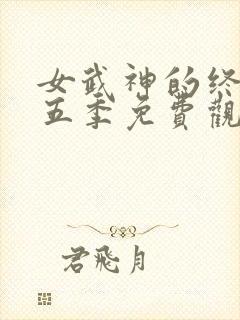 女武神的终
五季免費觀
君飛月